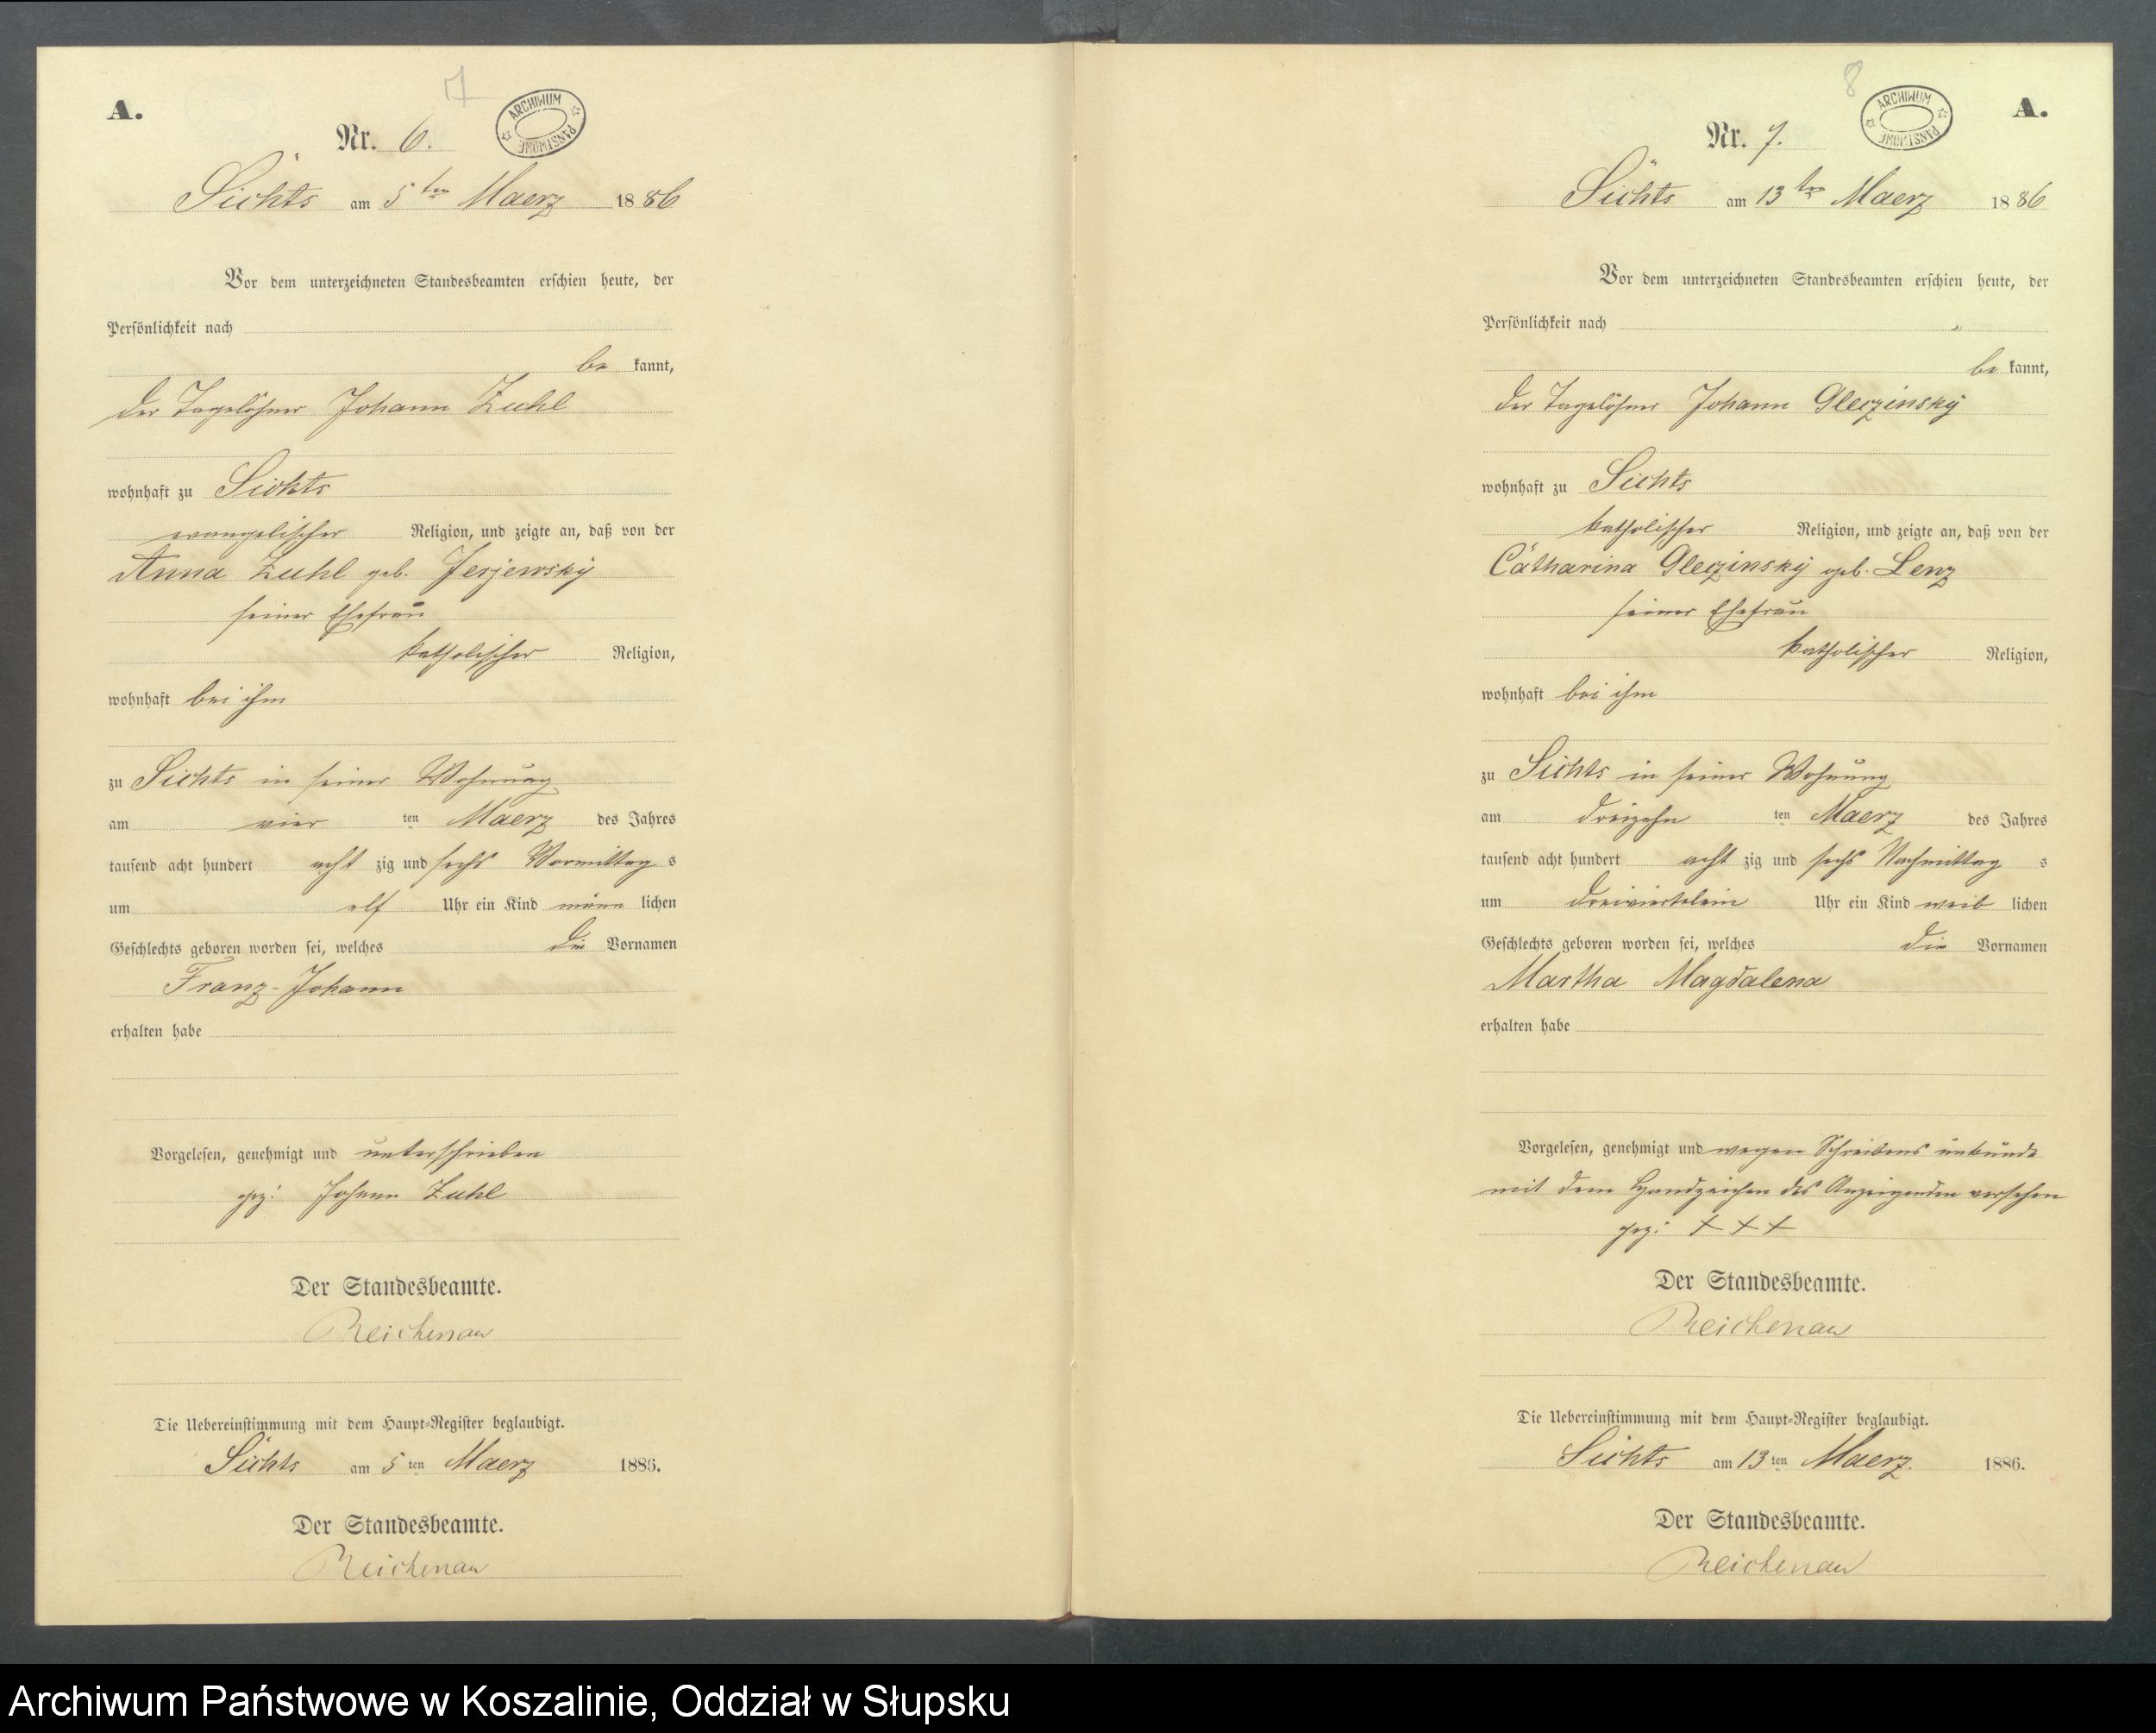 A.
7
Nr. 6.
ARCHIWUM PAŃSTWOWE
Sichts am 5ten Maerz 1886
Vor dem unterzeichneten Standesbeamten erschien heute, der
Persönlichkeit nach
be kannt,
der Tagelöhner Johann Zuhl
wohnhaft zu Sichts
evangelischer Religion, und zeigte an, daß von der
Anna Zuhl geb. Jerjewsky
seiner Ehefrau
katholischer Religion,
wohnhaft bei ihm
zu Sichts in seiner Wohnung
am vier ten Maerz des Jahres
tausend acht hundert acht zig und sechs Vormittag s
um elf Uhr ein Kind männ lichen
Geschlechts geboren worden sei, welches die Vornamen
Franz-Johann
erhalten habe
Vorgelesen, genehmigt und unterschrieben
gez: Johann Zuhl
Der Standesbeamte.
Reichenau
Die Uebereinstimmung mit dem Haupt-Register beglaubigt.
Sichts am 5 ten Maerz 1886.
Der Standesbeamte.
Reichenau
8
A.
Nr. 7.
ARCHIWUM PAŃSTWOWE
Sichts am 13ten Maerz 1886
Vor dem unterzeichneten Standesbeamten erschien heute, der
Persönlichkeit nach
be kannt,
der Tagelöhner Johann Gleczinsky
wohnhaft zu Sichts
katholischer Religion, und zeigte an, daß von der
Catharina Gleczinsky geb. Lenz
seiner Ehefrau
katholischer Religion,
wohnhaft bei ihm
zu Sichts in seiner Wohnung
am dreizehn ten Maerz des Jahres
tausend acht hundert acht zig und sechs Nachmittag s
um dreiviertelein Uhr ein Kind weib lichen
Geschlechts geboren worden sei, welches die Vornamen
Martha Magdalena
erhalten habe
Vorgelesen, genehmigt und wegen Schreibens unkunde
mit dem Handzeichen des Anzeigenden versehen
gez: + + +
Der Standesbeamte.
Reichenau
Die Uebereinstimmung mit dem Haupt-Register beglaubigt.
Sichts am 13 ten Maerz. 1886.
Der Standesbeamte.
Reichenau
Archiwum Państwowe w Koszalinie, Oddział w Słupsku